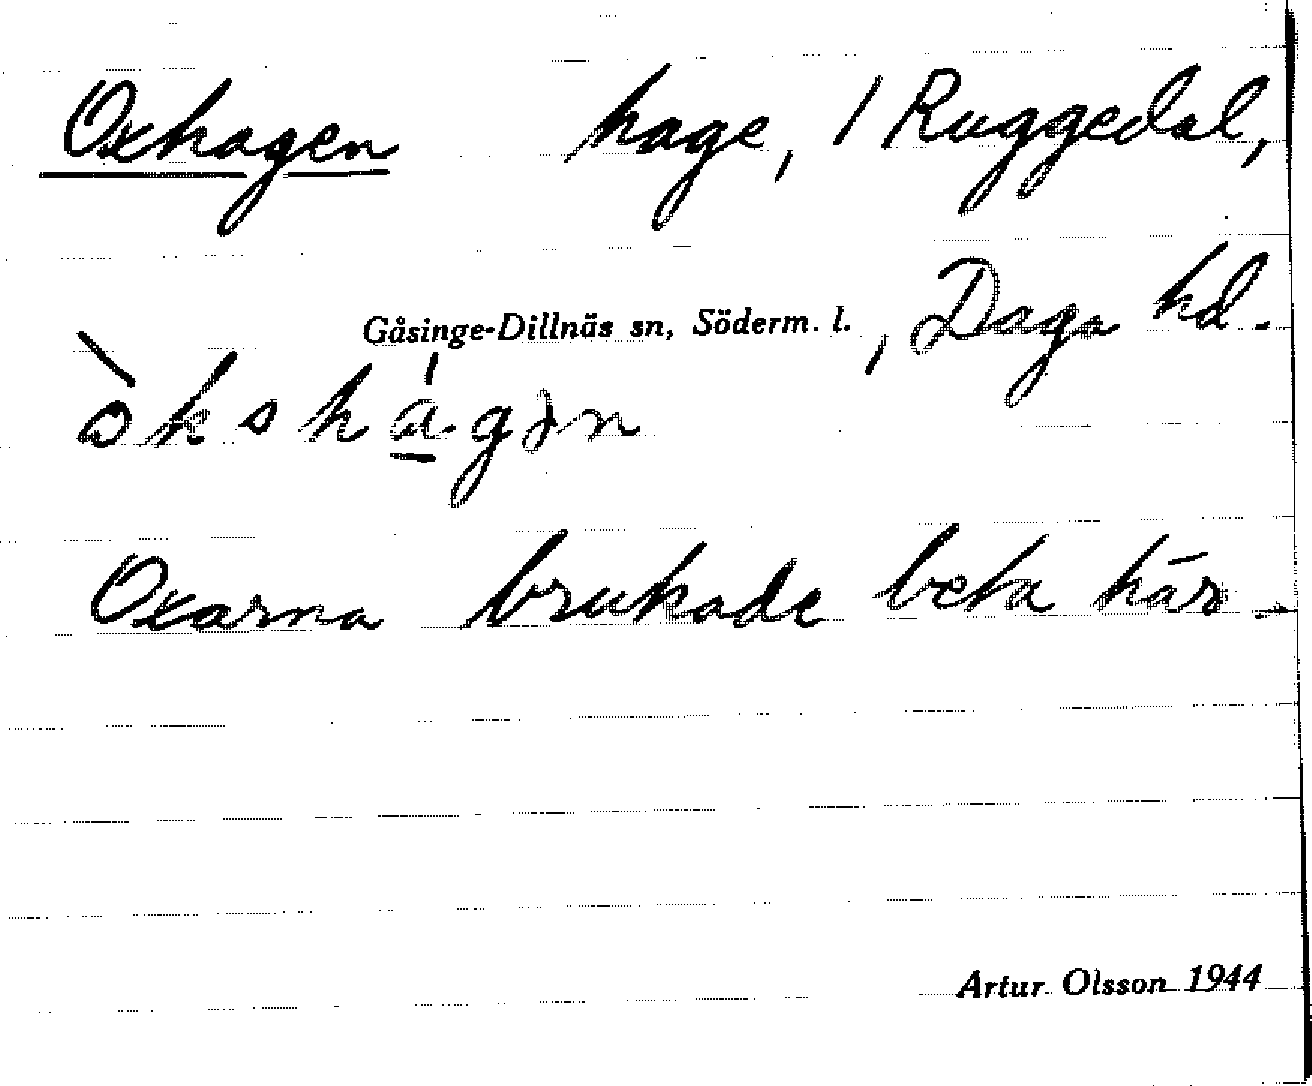 Oxhagen hage, 1 Ruggedal,
Gåsinge-Dillnäs sn, Söderm. l., Daga hd.
Oxarna brukade beta här.
Artur Olsson 1944